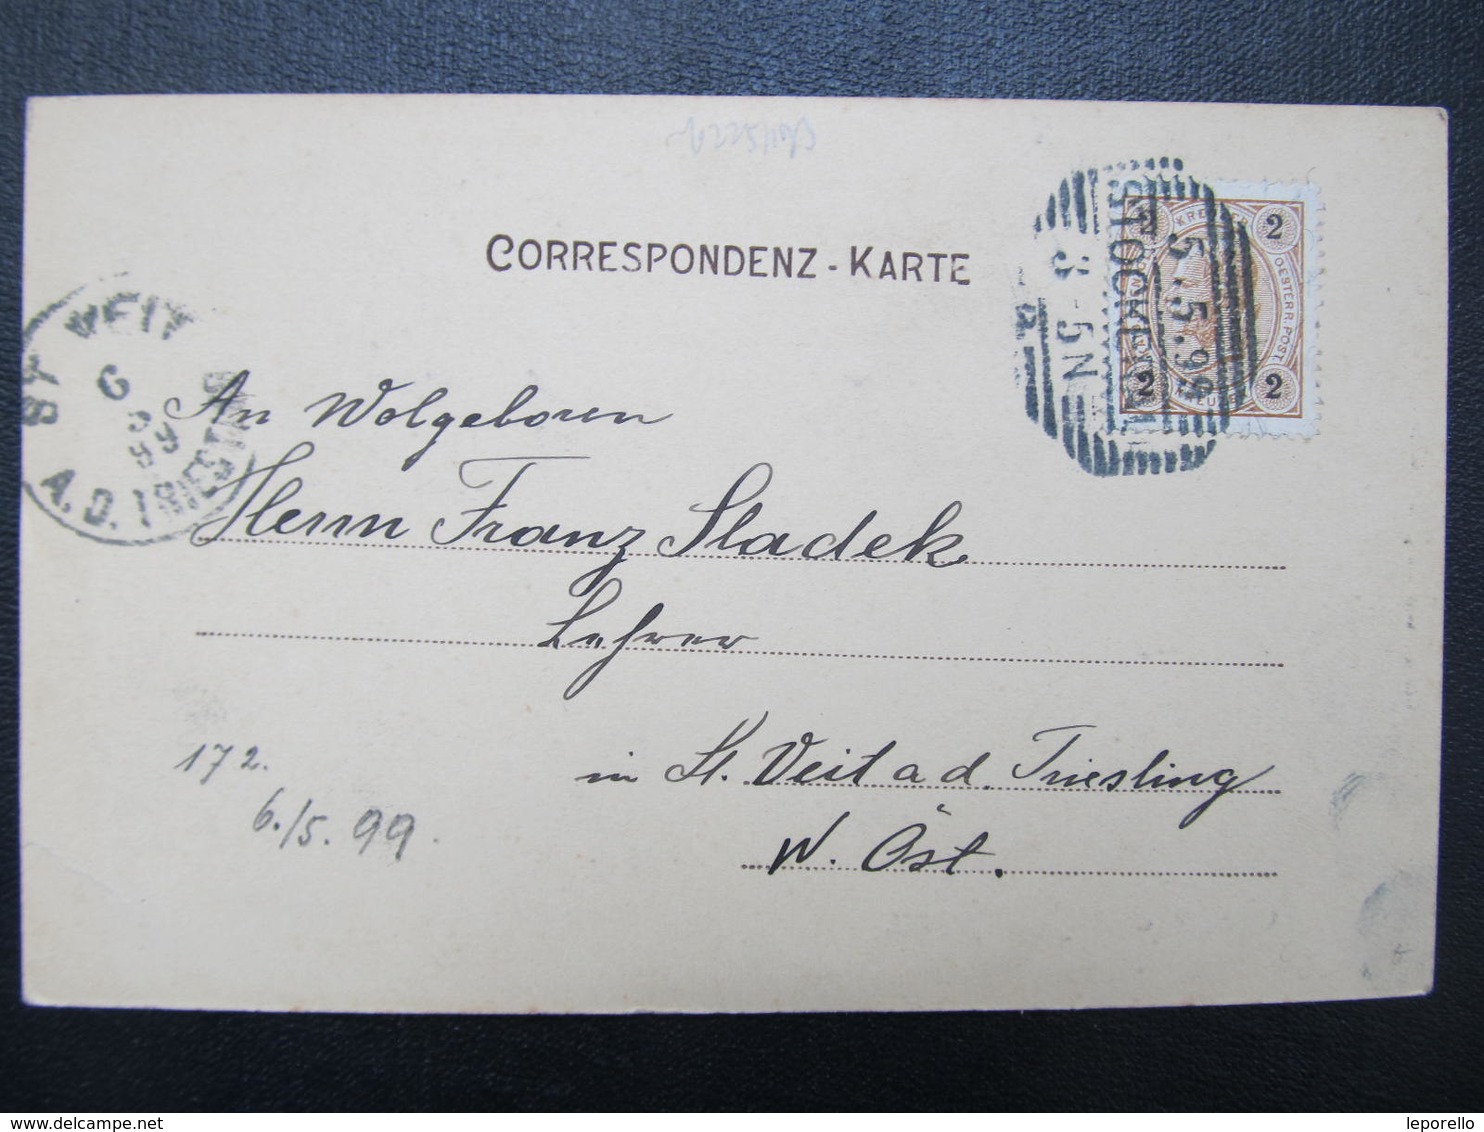 CORRESPONDENZ - KARTE
STOCKERAU
5.5.99
3-5N
2 KREUZER 2
OESTERR. POST
2 KREUZER 2
ST VEIT
6
5
99
A.D. TRIESTING
An Wolgeboren
Herrn Franz Sladek
Lehrer
in St. Veit a d. Triesting
N. Öst.
172.
6./5. 99.
delcampe.net
leporello